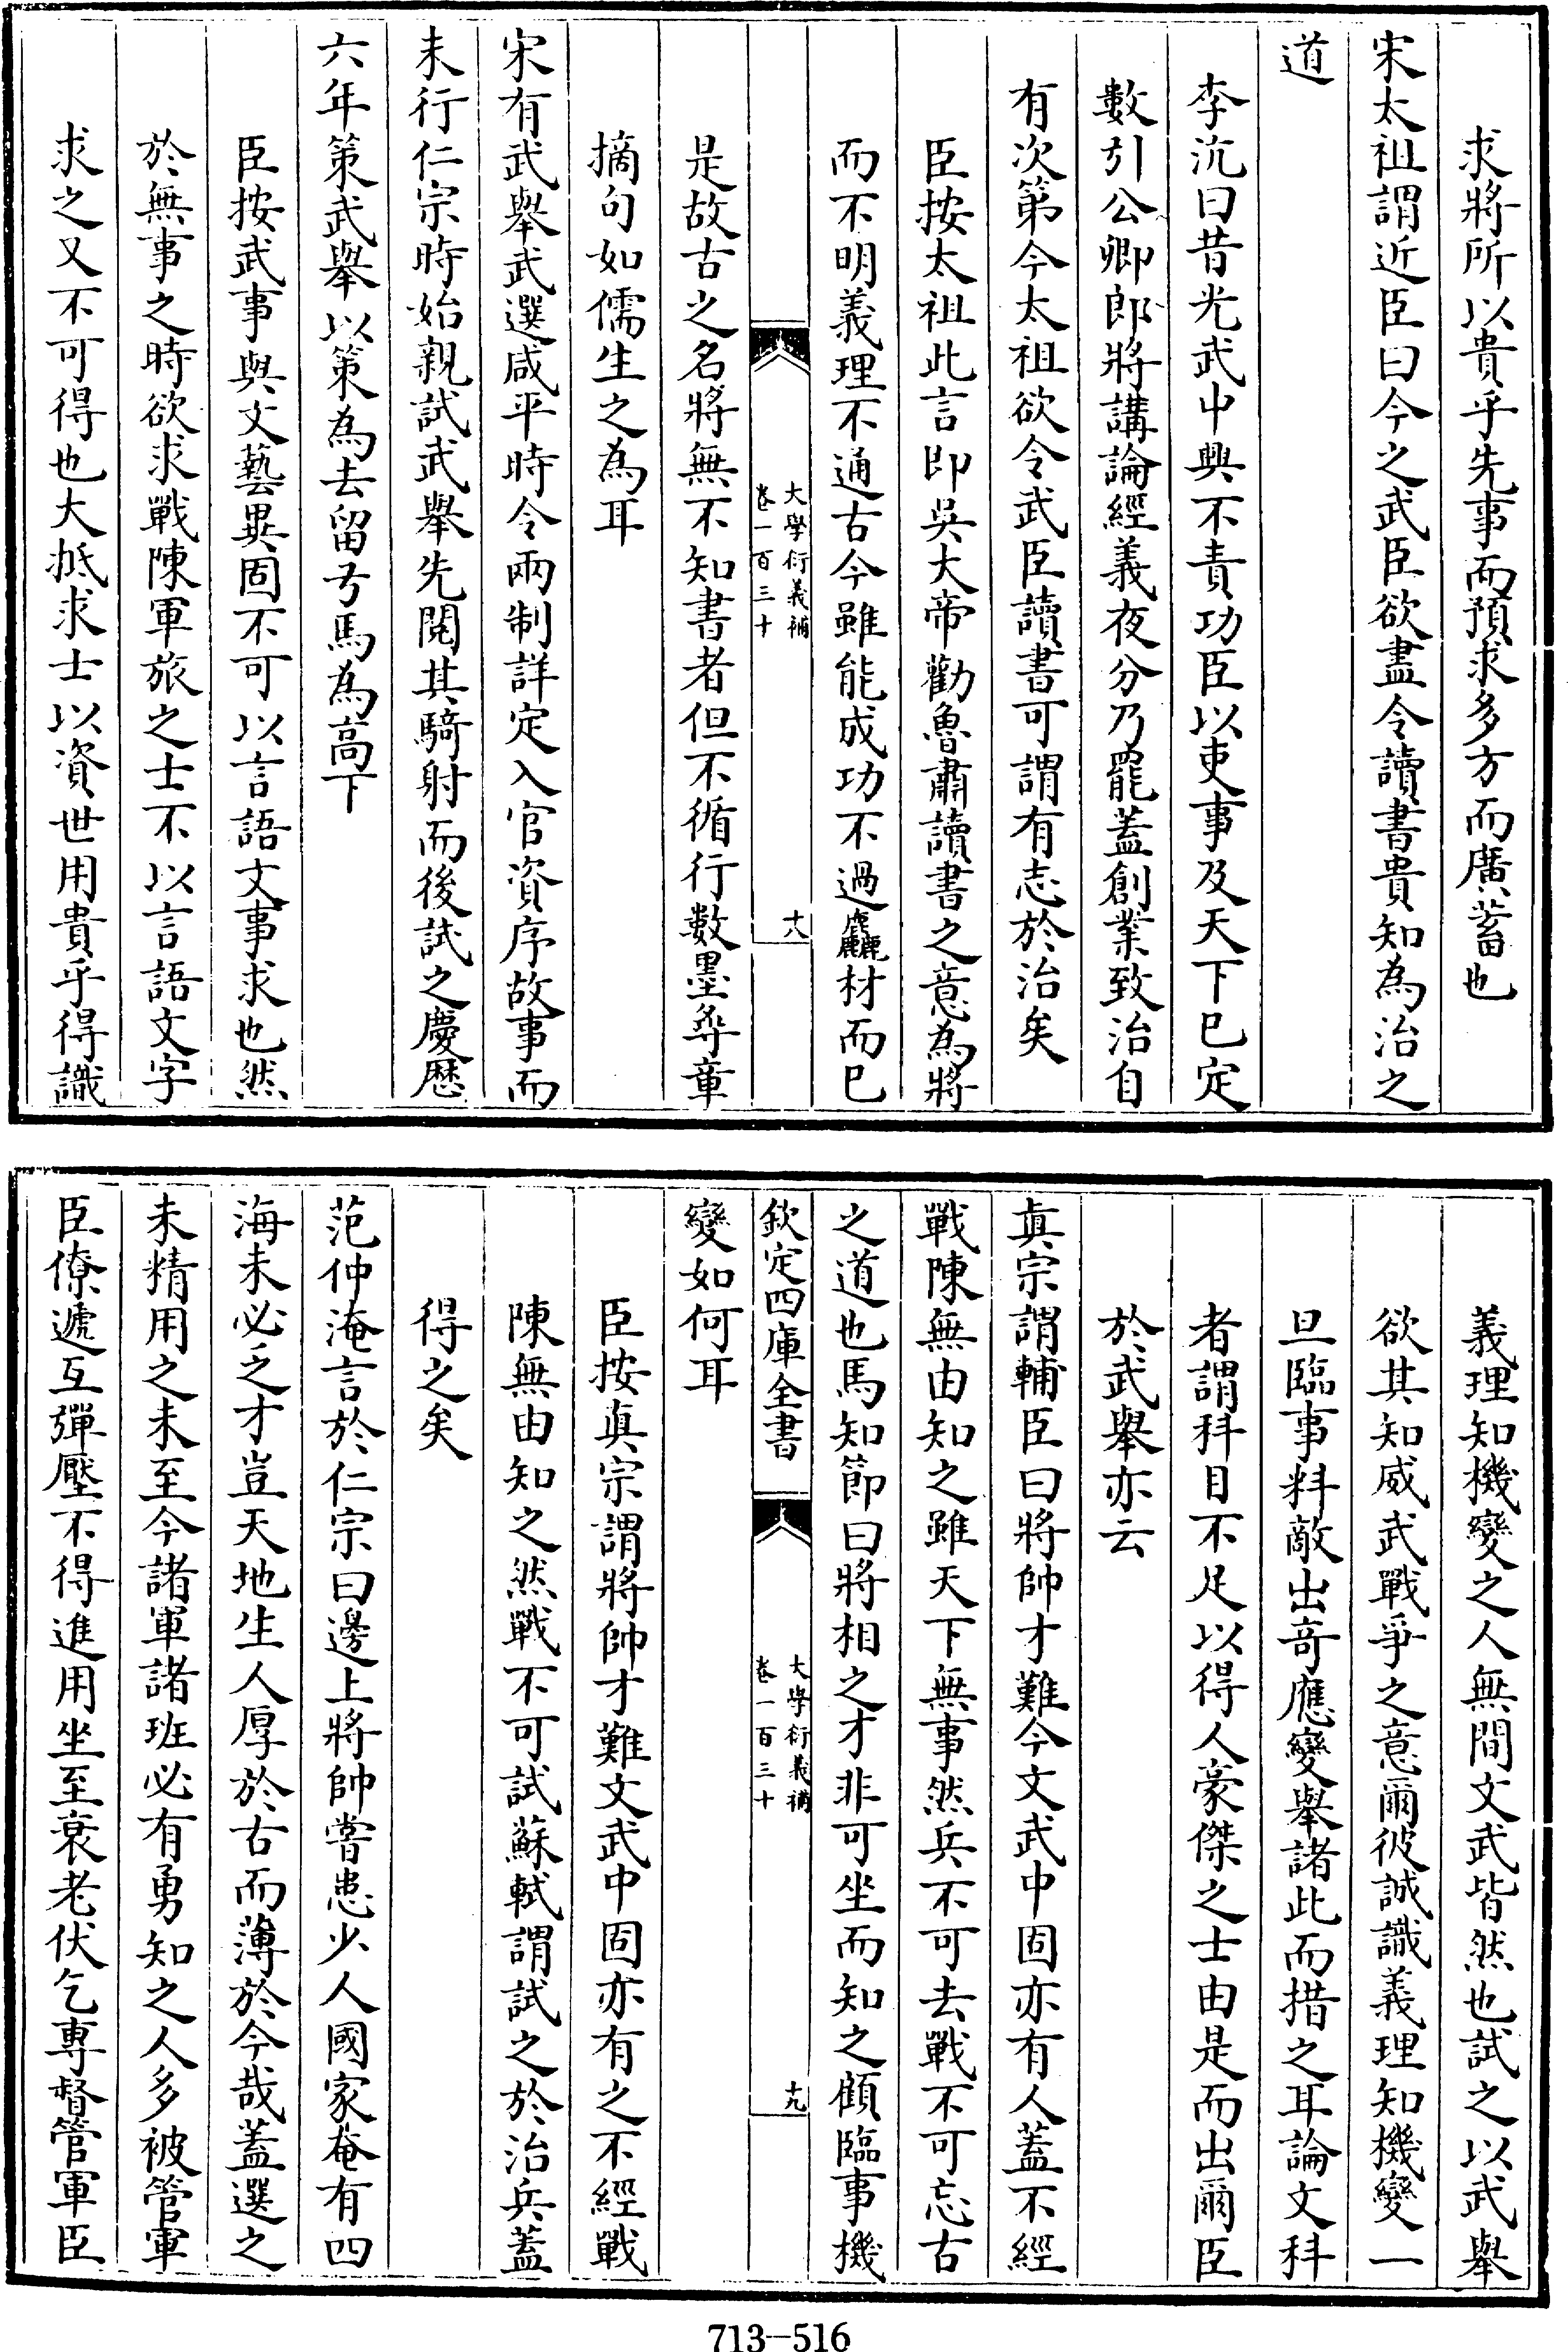 求將所以貴乎先事而預求多方而廣蓄也
宋太祖謂近臣曰今之武臣欲盡令讀書貴知為治之
道
李沆曰昔光武中興不責功臣以吏事及天下已定
數引公卿郎將講論經義夜分乃罷蓋創業致治自
有次第今太祖欲令武臣讀書可謂有志於治矣
臣按太祖此言即吳大帝勸魯肅讀書之意為將
而不明義理不通古今雖能成功不過麤材而已
大學衍義補
卷一百三十
十八
是故古之名將無不知書者但不循行數墨尋章
摘句如儒生之為耳
宋有武舉武選咸平時令兩制詳定入官資序故事而
未行仁宗時始親試武舉先閱其騎射而後試之慶歷
六年策武舉以策為去留弓馬為高下
臣按武事與文藝異固不可以言語文事求也然
於無事之時欲求戰陳軍旅之士不以言語文字
求之又不可得也大抵求士以資世用貴乎得識
義理知機變之人無間文武皆然也試之以武舉
欲其知威武戰爭之意爾彼誠識義理知機變一
旦臨事料敵出奇應變舉諸此而措之耳論文科
者謂科目不足以得人豪傑之士由是而出爾臣
於武舉亦云
真宗謂輔臣曰將帥才難今文武中固亦有人蓋不經
戰陳無由知之雖天下無事然兵不可去戰不可忘古
之道也馬知節曰將相之才非可坐而知之顧臨事機
欽定四庫全書
大學衍義補
卷一百三十
十九
變如何耳
臣按真宗謂將帥才難文武中固亦有之不經戰
陳無由知之然戰不可試蘇軾謂試之於治兵蓋
得之矣
范仲淹言於仁宗曰邊上將帥嘗患少人國家奄有四
海未必乏才豈天地生人厚於古而薄於今哉蓋選之
未精用之未至今諸軍諸班必有勇知之人多被管軍
臣僚遞互彈壓不得進用坐至衰老伏乞專督管軍臣
713-516